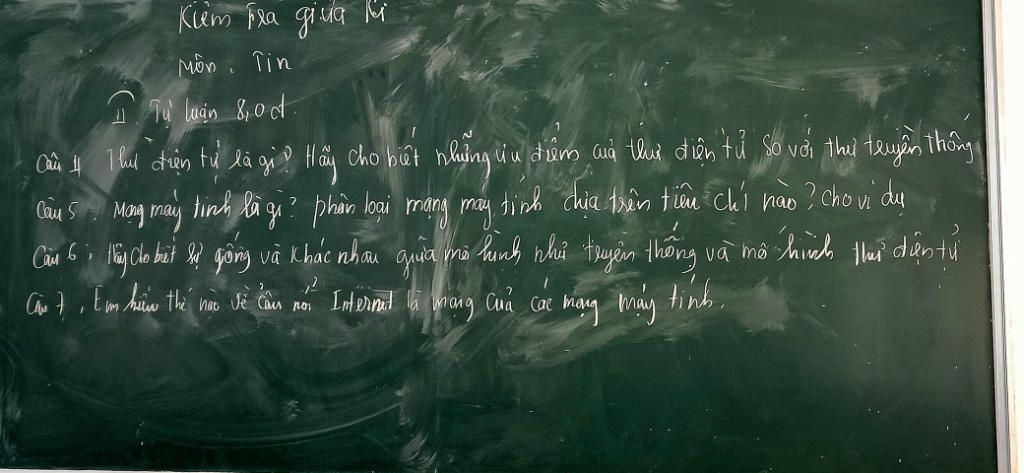 Kiểm tra giữa kì
Môn. Tin
II Tự luận 8,0đ.
Câu 4 Thư điện tử là gì? Hãy cho biết những ưu điểm của thư điện tử so với thư truyền thống
Câu 5. Mạng máy tính là gì? phân loại mạng máy tính dựa trên tiêu chí nào? Cho ví dụ
Câu 6, Hãy cho biết sự giống và khác nhau giữa mô hình như truyền thống và mô hình thư điện tử
Câu 7, Em hiểu thế nào về câu nói Internet là mạng của các mạng máy tính.